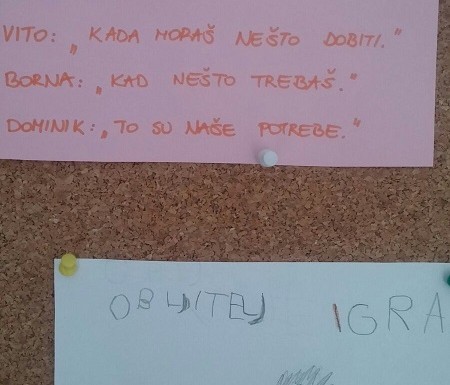 VITO: „KADA MORAŠ NEŠTO DOBITI."
BORNA: „KAD NEŠTO TREBAŠ."
DOMINIK: „TO SU NAŠE POTREBE."
OBITELJ IGRA